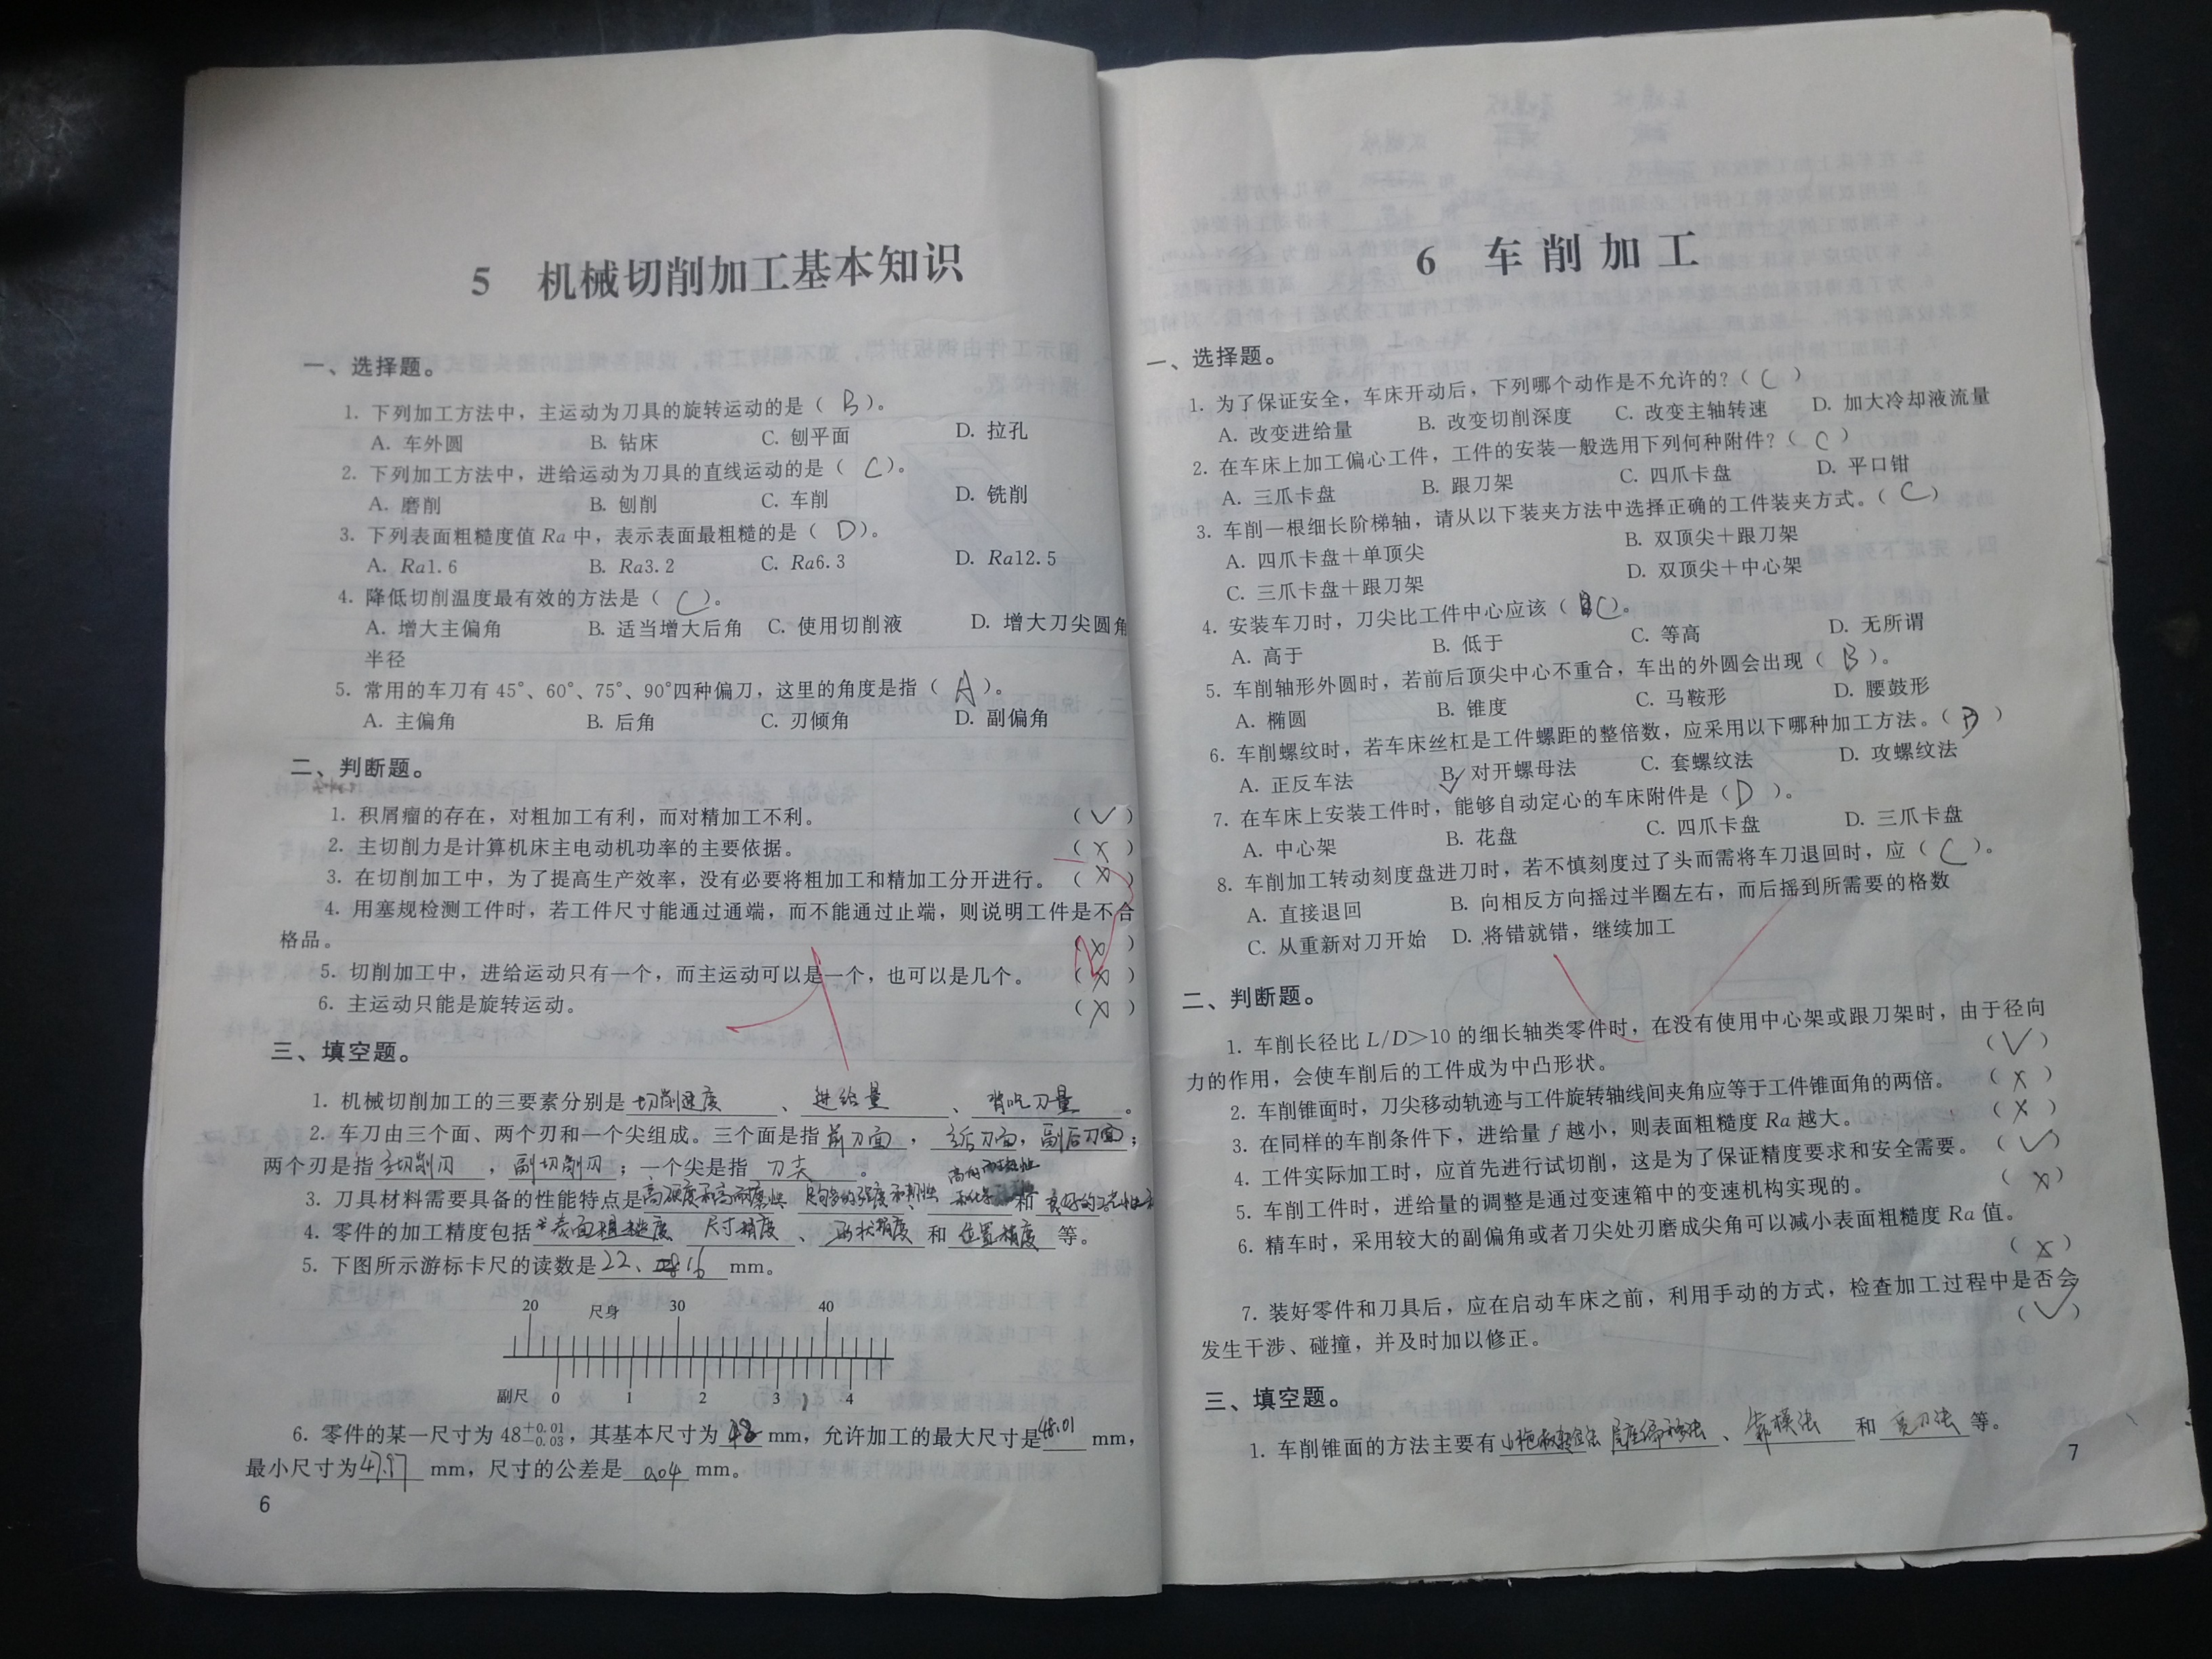 5 机械切削加工基本知识
一、选择题。
1. 下列加工方法中，主运动为刀具的旋转运动的是（ B ）。
A. 车外圆 B. 钻床 C. 刨平面 D. 拉孔
2. 下列加工方法中，进给运动为刀具的直线运动的是（ C ）。
A. 磨削 B. 刨削 C. 车削 D. 铣削
3. 下列表面粗糙度值 Ra 中，表示表面最粗糙的是（ D ）。
A. Ra1.6 B. Ra3.2 C. Ra6.3 D. Ra12.5
4. 降低切削温度最有效的方法是（ C ）。
A. 增大主偏角 B. 适当增大后角 C. 使用切削液 D. 增大刀尖圆角
半径
5. 常用的车刀有 45°、60°、75°、90°四种偏刀，这里的角度是指（ A ）。
A. 主偏角 B. 后角 C. 刃倾角 D. 副偏角
二、判断题。
1. 积屑瘤的存在，对粗加工有利，而对精加工不利。 （ ✓ ）
2. 主切削力是计算机床主电动机功率的主要依据。 （ × ）
3. 在切削加工中，为了提高生产效率，没有必要将粗加工和精加工分开进行。 （ × ）
4. 用塞规检测工件时，若工件尺寸能通过通端，而不能通过止端，则说明工件是不合
格品。 （ × ）
5. 切削加工中，进给运动只有一个，而主运动可以是一个，也可以是几个。 （ × ）
6. 主运动只能是旋转运动。 （ × ）
三、填空题。
1. 机械切削加工的三要素分别是 切削速度 、 进给量 、 背吃刀量 。
2. 车刀由三个面、两个刃和一个尖组成。三个面是指 前刀面 ， 主后刀面 ， 副后刀面 ；
两个刃是指 主切削刃 ， 副切削刃 ；一个尖是指 刀尖 。
高的耐热性
3. 刀具材料需要具备的性能特点是 高硬度和高耐磨性 足够的强度和韧性 和 良好的工艺性
4. 零件的加工精度包括 表面粗糙度 尺寸精度 、 形状精度 和 位置精度 等。
5. 下图所示游标卡尺的读数是 22. 16 mm。
20 尺身 30 40
副尺 0 1 2 3 4
6. 零件的某一尺寸为 48+0.01 −0.03，其基本尺寸为 48 mm，允许加工的最大尺寸是 48.01 mm，
最小尺寸为 47.97 mm，尺寸的公差是 0.04 mm。
6
6 车削加工
一、选择题。
1. 为了保证安全，车床开动后，下列哪个动作是不允许的？（ C ）
A. 改变进给量 B. 改变切削深度 C. 改变主轴转速 D. 加大冷却液流量
2. 在车床上加工偏心工件，工件的安装一般选用下列何种附件？（ C ）
A. 三爪卡盘 B. 跟刀架 C. 四爪卡盘 D. 平口钳
3. 车削一根细长阶梯轴，请从以下装夹方法中选择正确的工件装夹方式。（ C ）
A. 四爪卡盘＋单顶尖 B. 双顶尖＋跟刀架
C. 三爪卡盘＋跟刀架 D. 双顶尖＋中心架
4. 安装车刀时，刀尖比工件中心应该（ C ）。
A. 高于 B. 低于 C. 等高 D. 无所谓
5. 车削轴形外圆时，若前后顶尖中心不重合，车出的外圆会出现（ B ）。
A. 椭圆 B. 锥度 C. 马鞍形 D. 腰鼓形
6. 车削螺纹时，若车床丝杠是工件螺距的整倍数，应采用以下哪种加工方法。（ B ）
A. 正反车法 B. 对开螺母法 C. 套螺纹法 D. 攻螺纹法
7. 在车床上安装工件时，能够自动定心的车床附件是（ D ）。
A. 中心架 B. 花盘 C. 四爪卡盘 D. 三爪卡盘
8. 车削加工转动刻度盘进刀时，若不慎刻度过了头而需将车刀退回时，应（ C ）。
A. 直接退回 B. 向相反方向摇过半圈左右，而后摇到所需要的格数
C. 从重新对刀开始 D. 将错就错，继续加工
二、判断题。
1. 车削长径比 L/D>10 的细长轴类零件时，在没有使用中心架或跟刀架时，由于径向
力的作用，会使车削后的工件成为中凸形状。 （ ✓ ）
2. 车削锥面时，刀尖移动轨迹与工件旋转轴线间夹角应等于工件锥面角的两倍。 （ × ）
3. 在同样的车削条件下，进给量 f 越小，则表面粗糙度 Ra 越大。 （ × ）
4. 工件实际加工时，应首先进行试切削，这是为了保证精度要求和安全需要。 （ ✓ ）
5. 车削工件时，进给量的调整是通过变速箱中的变速机构实现的。 （ × ）
6. 精车时，采用较大的副偏角或者刀尖处刃磨成尖角可以减小表面粗糙度 Ra 值。
（ × ）
7. 装好零件和刀具后，应在启动车床之前，利用手动的方式，检查加工过程中是否会
发生干涉、碰撞，并及时加以修正。 （ ✓ ）
三、填空题。
1. 车削锥面的方法主要有 小拖板转位法 尾座偏移法 、 靠模法 和 宽刀法 等。
7